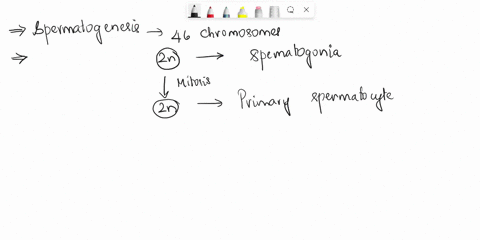 ⇒ Spermatogenesis → 46 Chromosomes
⇒ 2n → Spematogonia
↓ Mitosis
2n → Primary spermatocyte